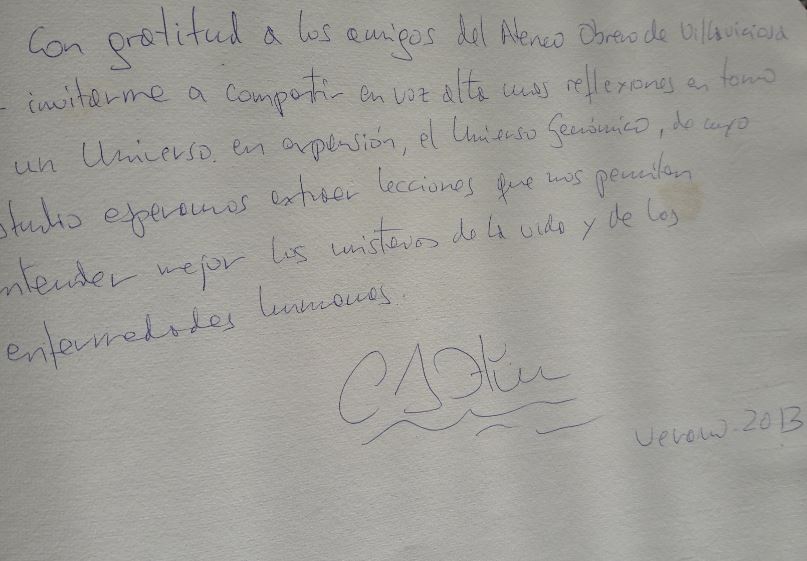 Con gratitud a los amigos del Ateneo Obrero de Villaviciosa
invitarme a compartir en voz alta unas reflexiones en torno
un Universo en expansión, el Universo Genómico, de cuyo
studio esperamos extraer lecciones que nos permitan
ntender mejor los misterios de la vida y de las
enfermedades humanas.
Verano-2013